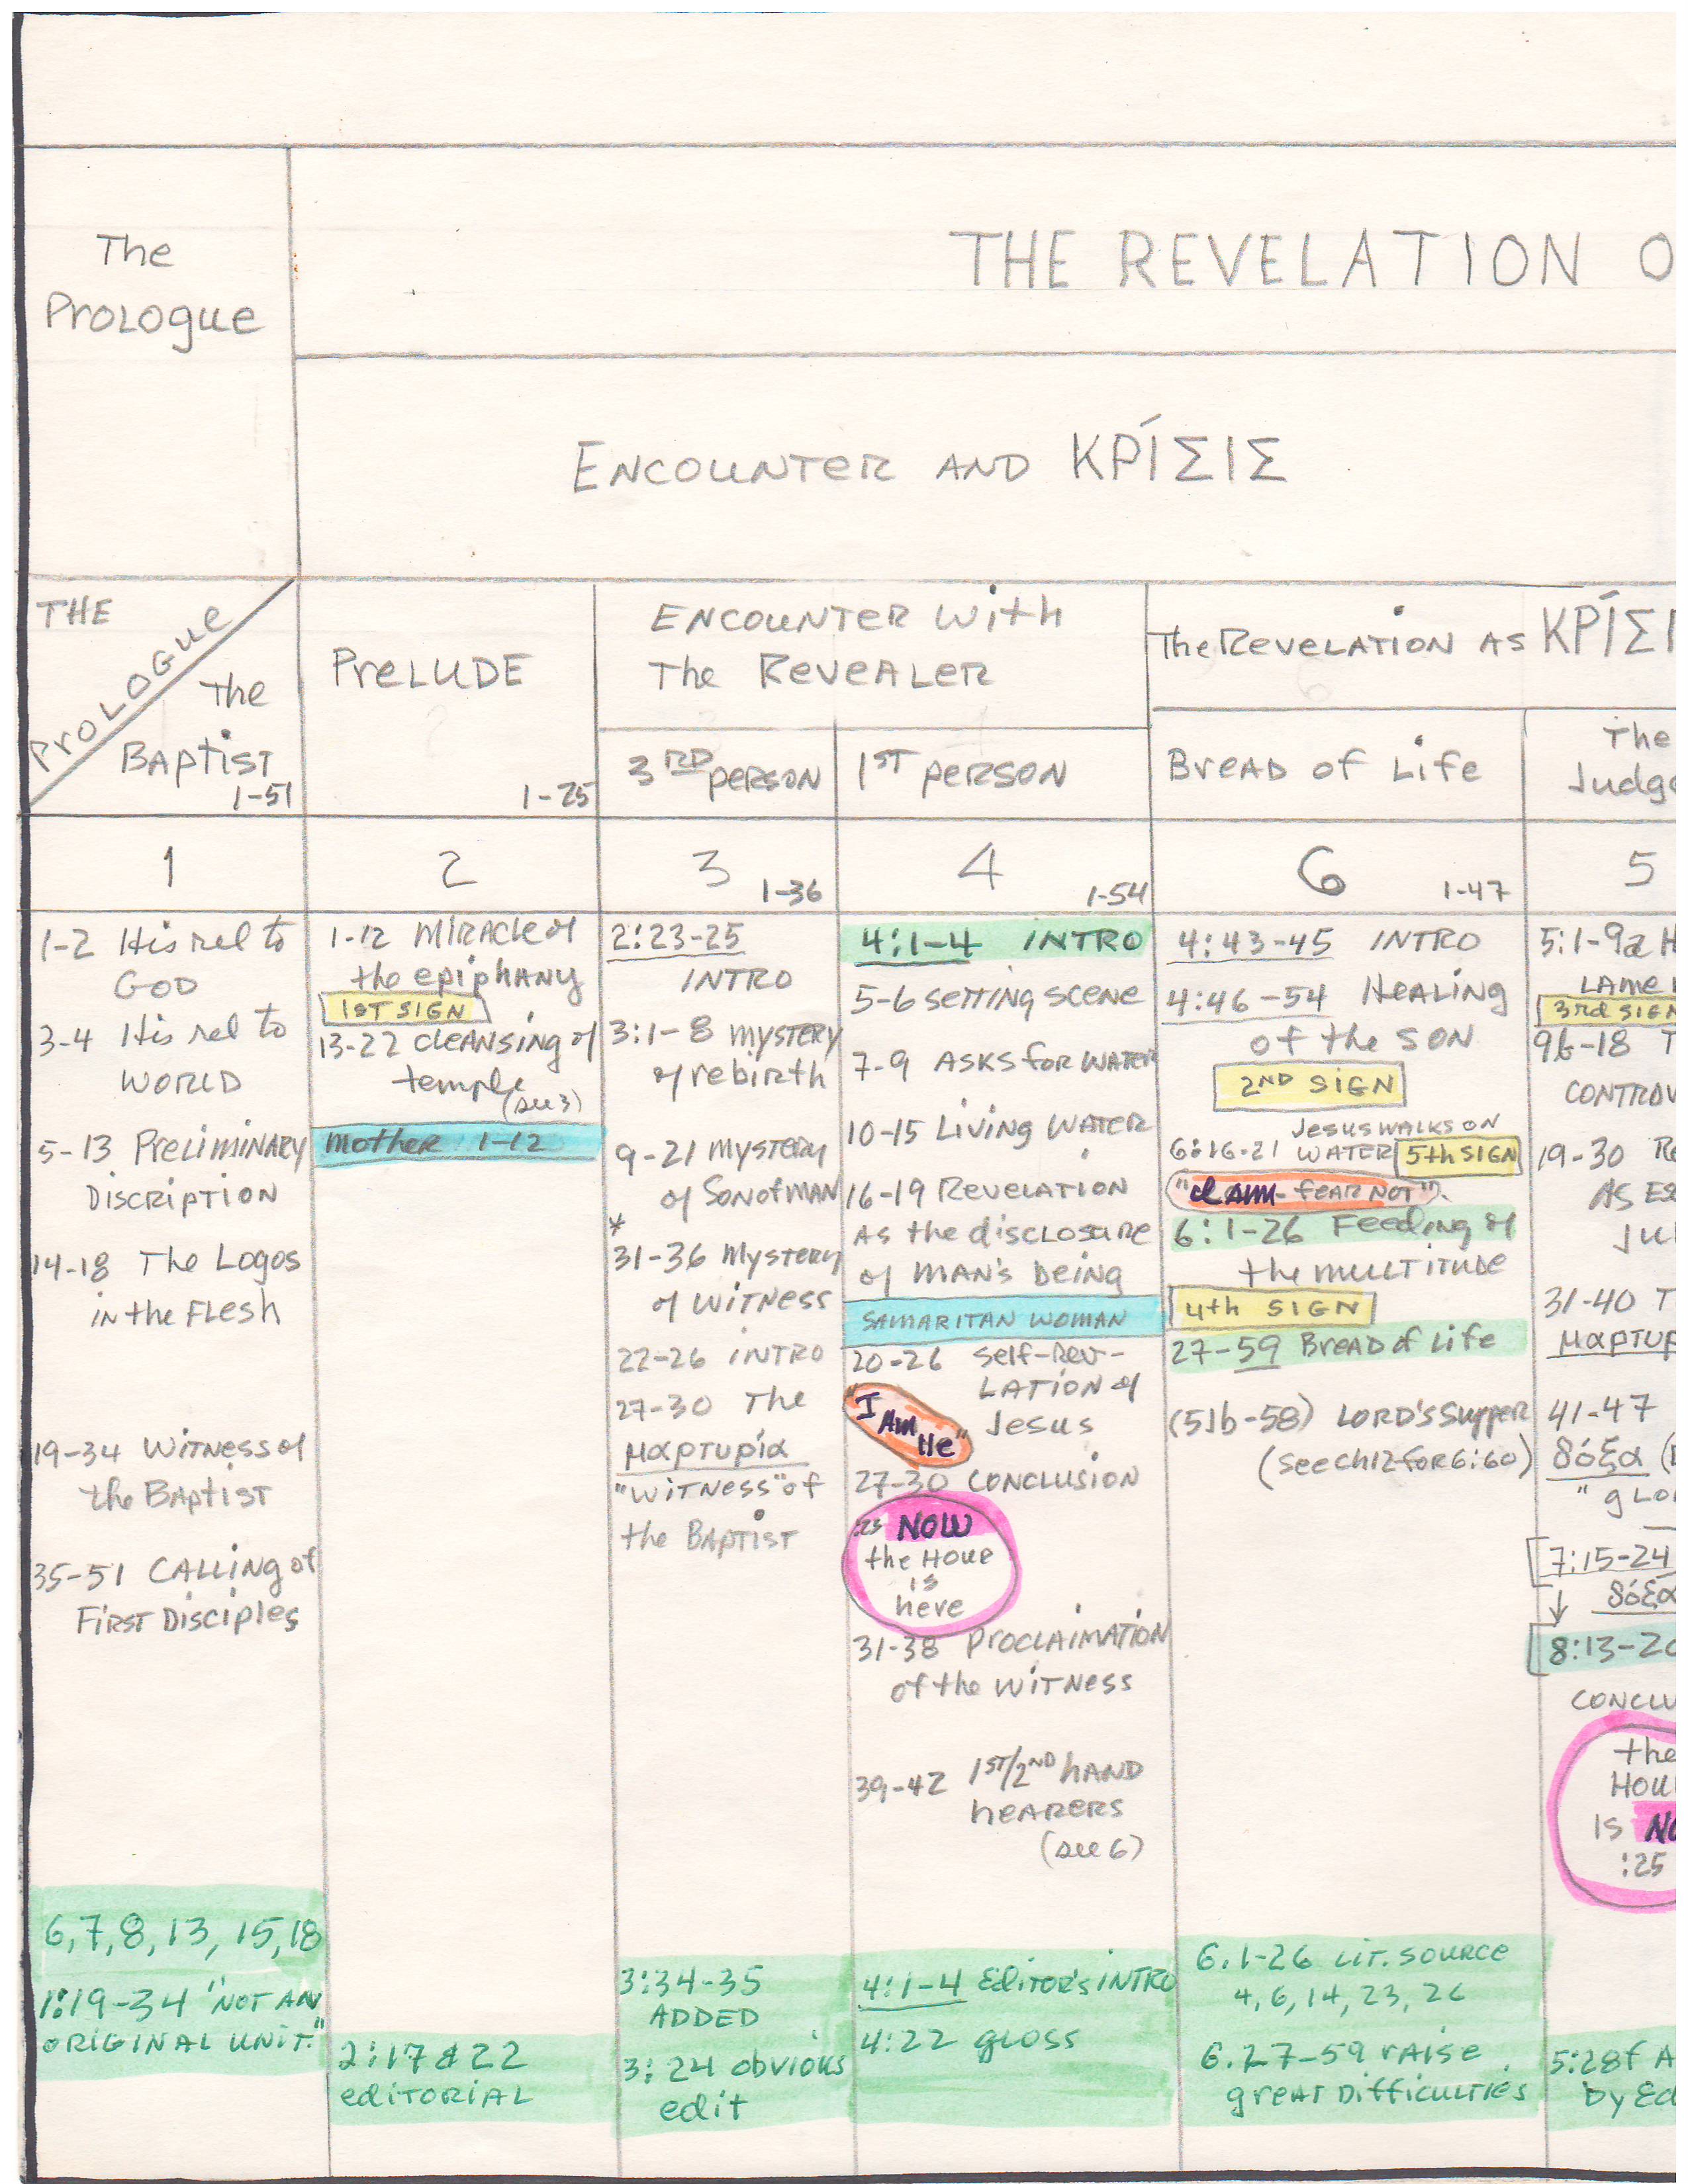 The
Prologue
THE REVELATION O
ENCOUNTER AND ΚΡΊΣΙΣ
THE
PROLOGUE
The
BAPTIST
1-51
PRELUDE
1-25
ENCOUNTER With
The REVEALER
3RD PERSON
1ST PERSON
The REVELATION AS ΚΡΊΣΙ
BREAD of Life
The
Judge
1
2
3 1-36
4 1-54
6 1-47
5
1-2 His rel to
GOD
3-4 His rel to
WORLD
5-13 PRELIMINARY
DISCRIPTION
14-18 The Logos
IN the FLESH
19-34 WITNESS of
the BAPTIST
35-51 CALLING of
FIRST DISCIPLES
6,7,8,13, 15,18
1:19-34 "NOT AN
ORIGINAL UNIT."
1-12 MIRACLE of
the epiphany
1ST SIGN
13-22 CLEANSING of
temple
(see 3)
mother 1-12
2:17 & 22
editorial
2:23-25
INTRO
3:1-8 MYSTERY
of rebirth
9-21 MYSTERY
of SON of MAN
*
31-36 MYSTERY
of WITNESS
22-26 INTRO
27-30 The
μαρτυρία
"WITNESS" of
the BAPTIST
3:34-35
ADDED
3:24 obvious
edit
4:1-4 INTRO
5-6 SETTING SCENE
7-9 ASKS for WATER
10-15 Living WATER
16-19 REVELATION
AS the disclosure
of MAN'S being
SAMARITAN WOMAN
20-26 Self-Rev-
LATION of
Jesus
"I
AM
He"
27-30 CONCLUSION
:23 NOW
the HOUR
is
here
31-38 PROCLAIMATION
of the WITNESS
39-42 1ST/2ND hAND
hEARERS
(see 6)
4:1-4 Editor's INTRO
4:22 gloss
4:43-45 INTRO
4:46-54 HEALING
of the SON
2ND SIGN
Jesus WALKS ON
6:16-21 WATER 5th SIGN
"I AM - FEAR NOT".
6:1-26 Feeding of
the MULTITUDE
4th SIGN
27-59 BREAD of Life
(51b-58) LORD'S Supper
(see ch 12 for 6:60)
6.1-26 LIT. SOURCE
4, 6, 14, 23, 26
6.27-59 RAISE
great DIFFICULTIES
5:1-9a H
LAME
3rd SIGN
9b-18 T
CONTROV
19-30 Re
AS ES
Ju
31-40 T
μαρτυρ
41-47
δόξα (
"gLO
7:15-24
↓ δόξα
8:13-20
CONCLU
the
HOU
IS NO
:25
5:28f A
by Ed